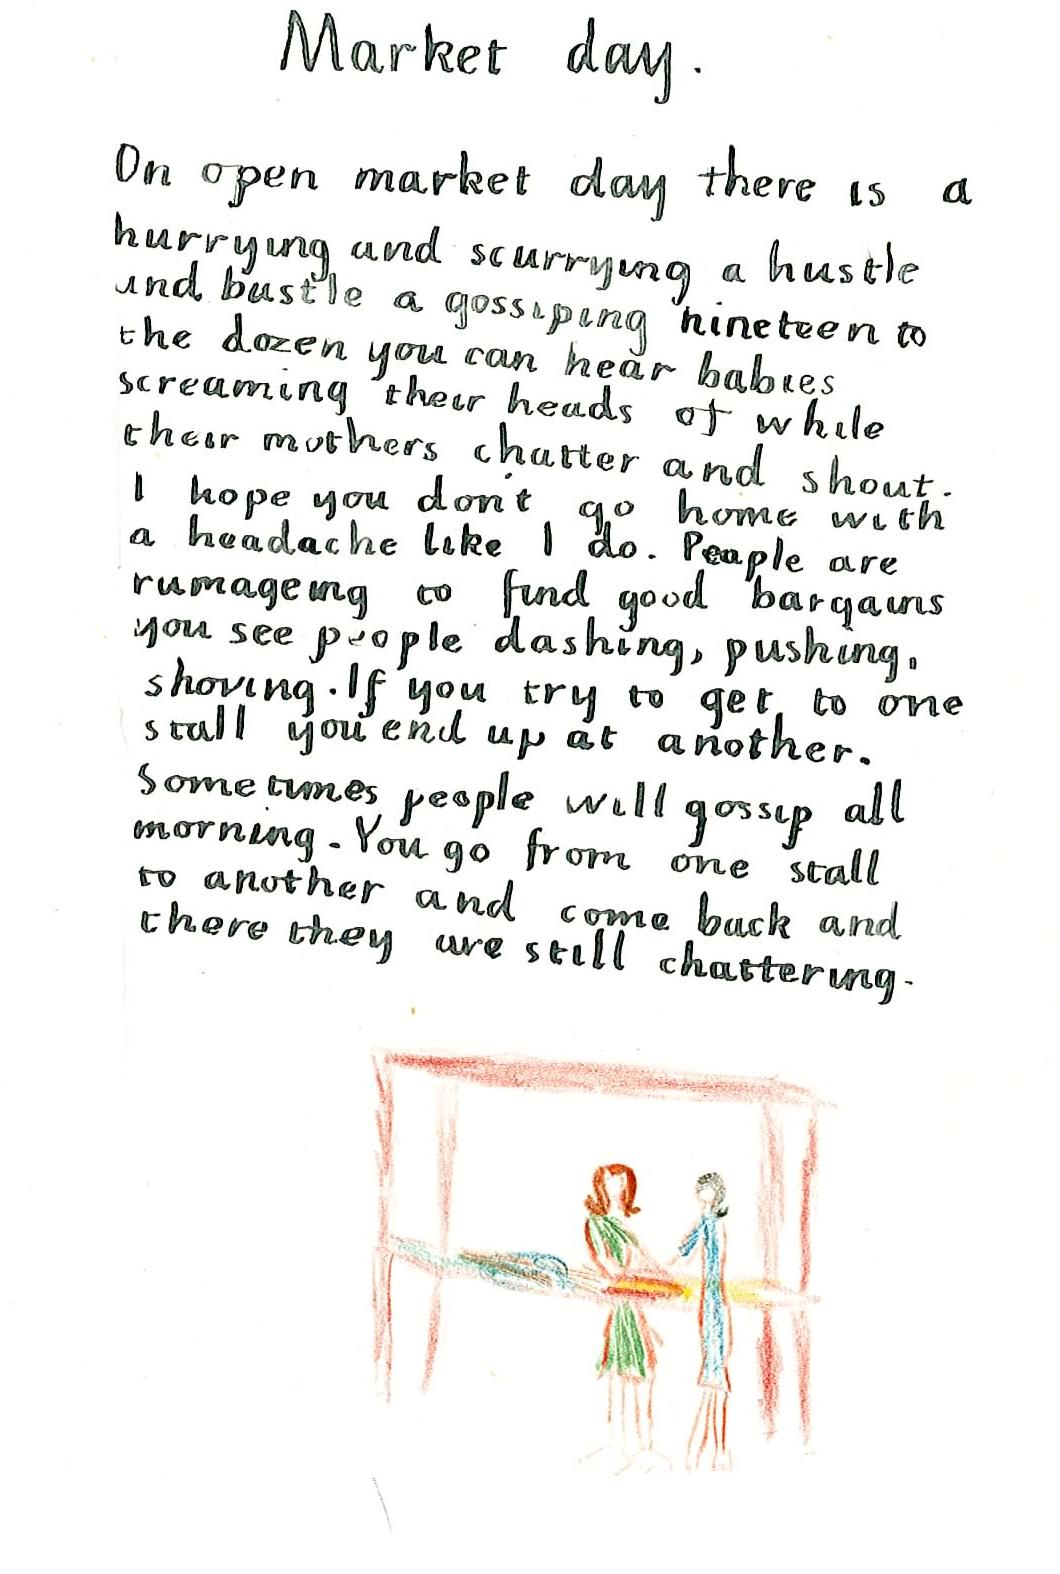 Market day.
On open market day there is a
hurrying and scurrying a hustle
and bustle a gossiping nineteen to
the dozen you can hear babies
screaming their heads of while
their mothers chatter and shout.
I hope you don't go home with
a headache like I do. Peaple are
rumageing to find good bargains
you see people dashing, pushing,
shoving. If you try to get to one
stall you end up at another.
Sometimes people will gossip all
morning. You go from one stall
to another and come back and
there they are still chattering.